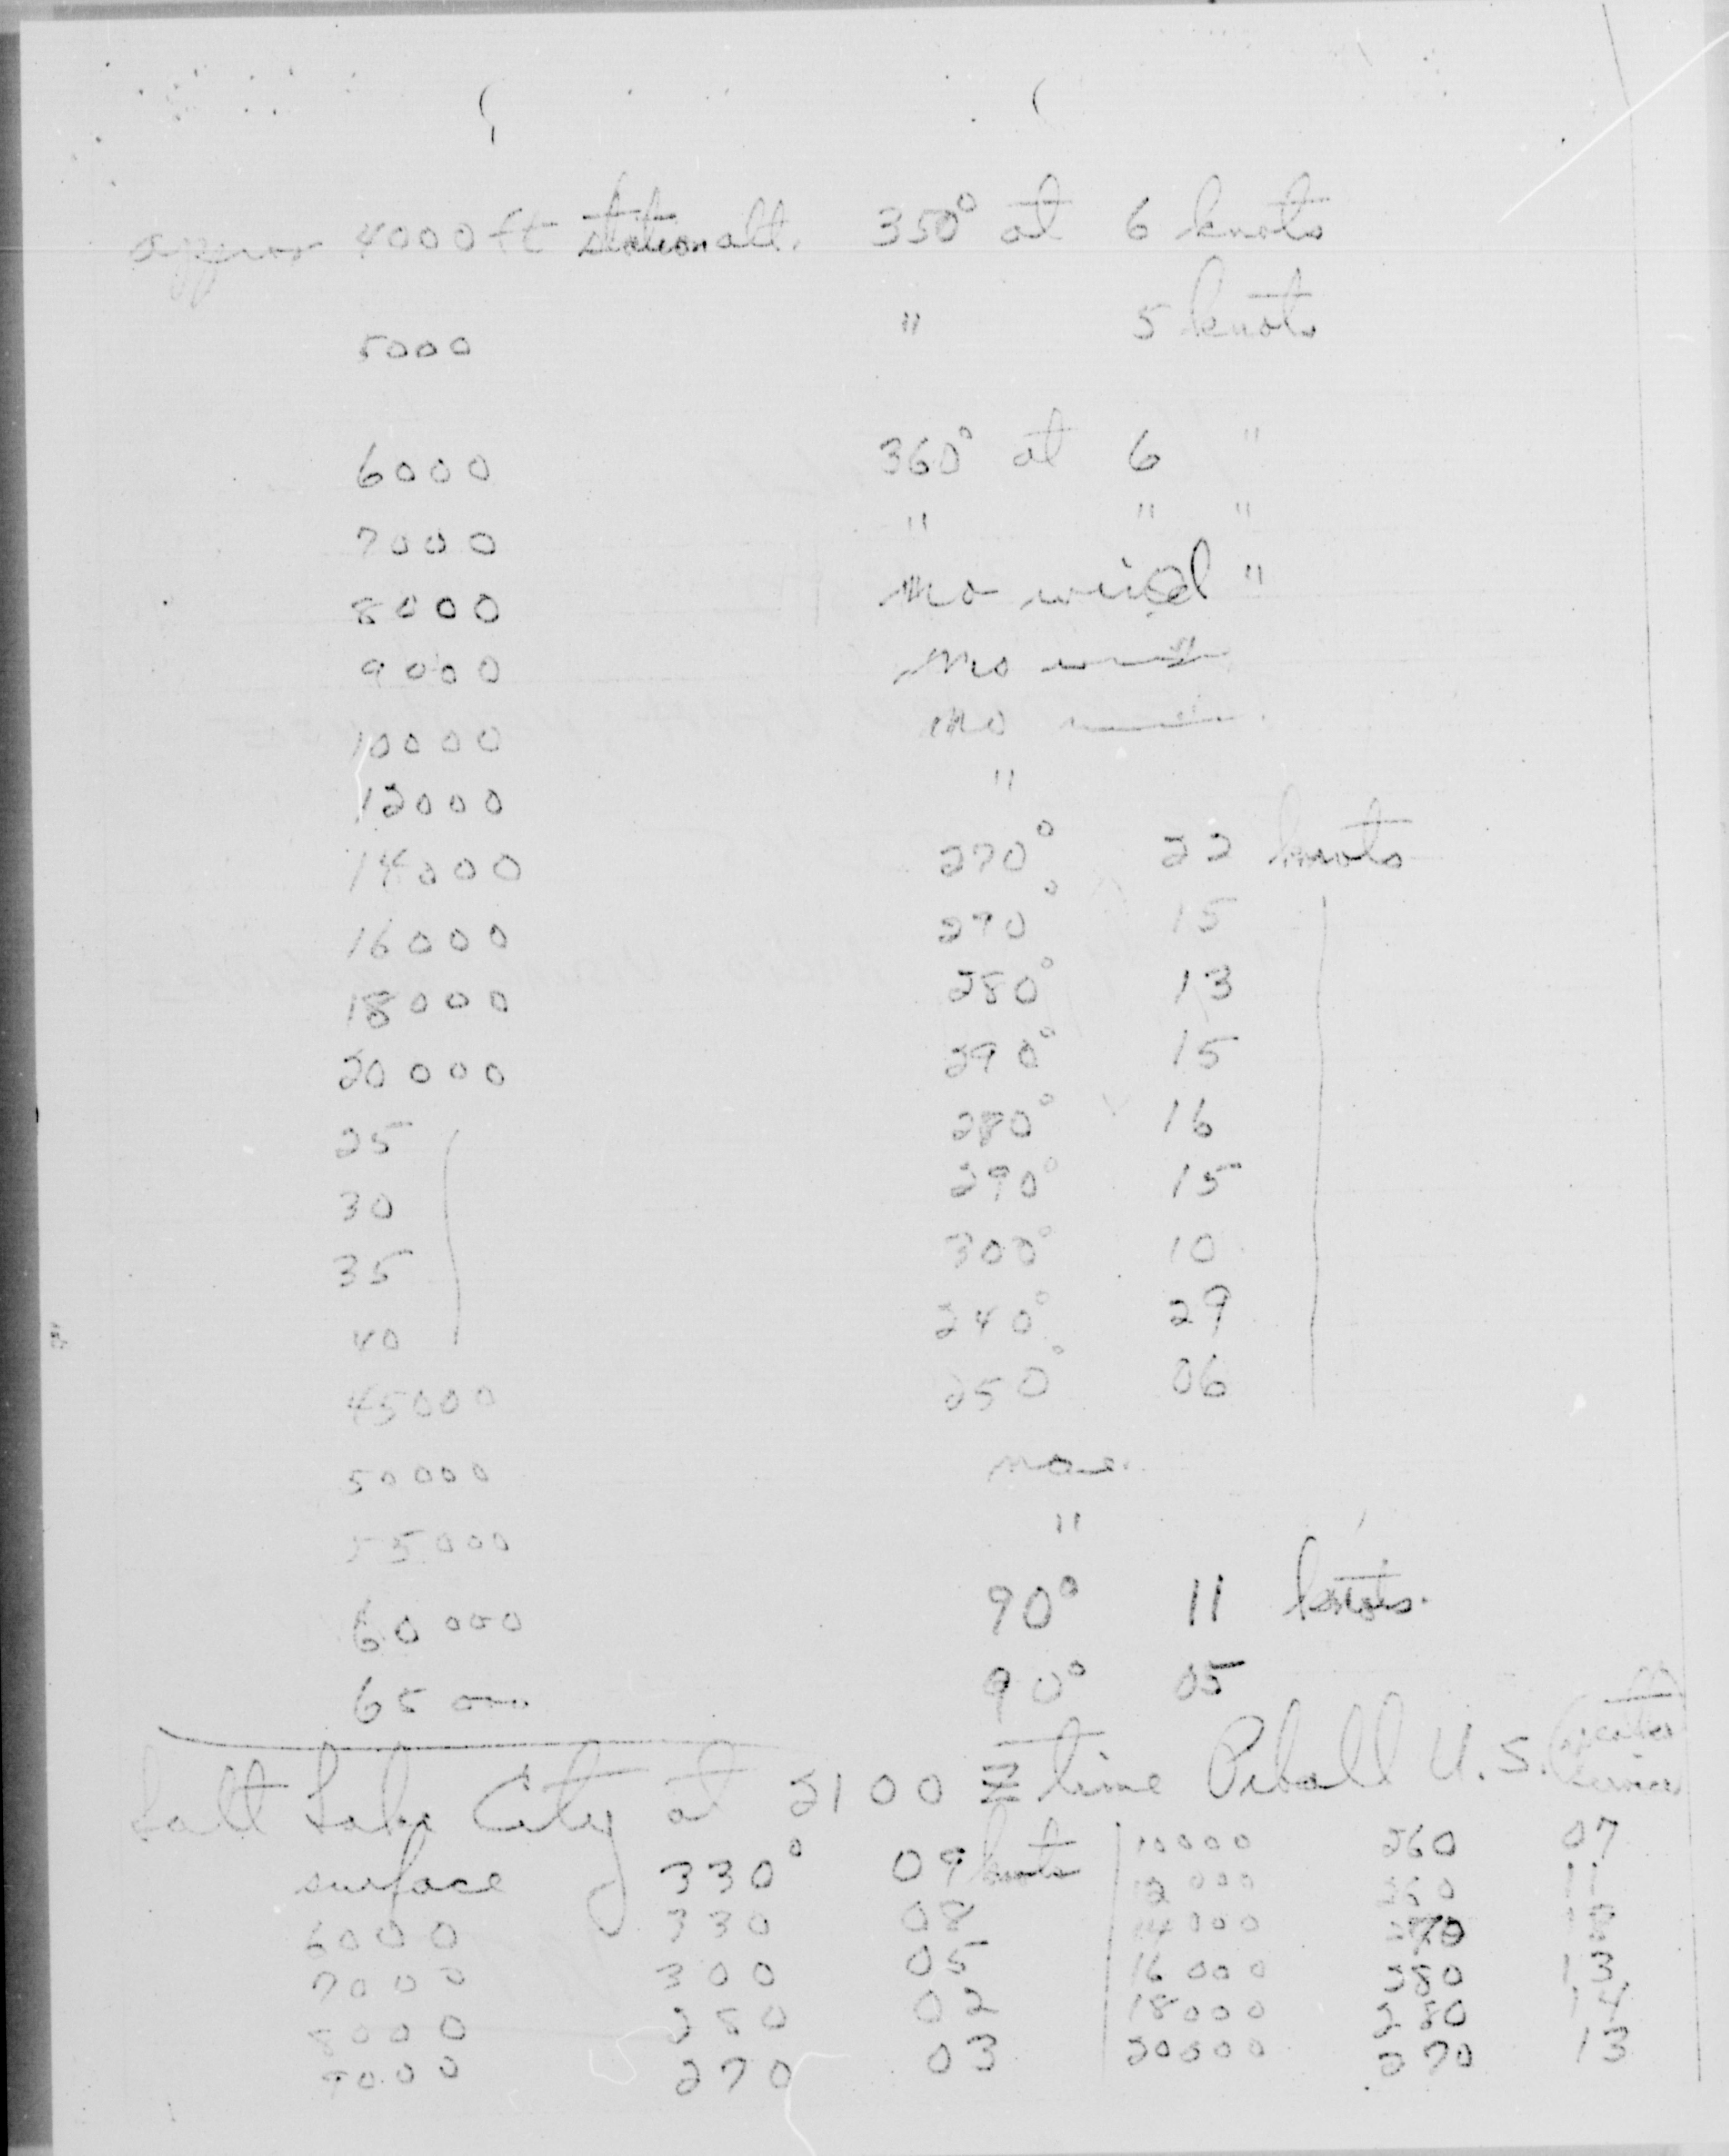 approx 4000 ft station alt. 350° at 6 knots
5000 " 5 knots
6000 360° at 6 "
7000 " " "
8000 no wind "
9000 no wind
10000 no wind
12000 "
14000 270° 22 knots
16000 270° 15
18000 280° 13
20000 290° 15
25 280° 16
30 290° 15
35 300° 10
40 240° 29
45000 250° 06
50000 none.
55000 "
60000 90° 11 knots.
65000 90° 05
Salt Lake City at 2100 Z time Piball U.S. Weather
surface 330° 09 knots 10000 260 07
6000 330 08 12000 11
7000 300 05 14000 270 18
8000 280 02 16000 280 13
9000 270 03 18000 280 14
20000 270 13